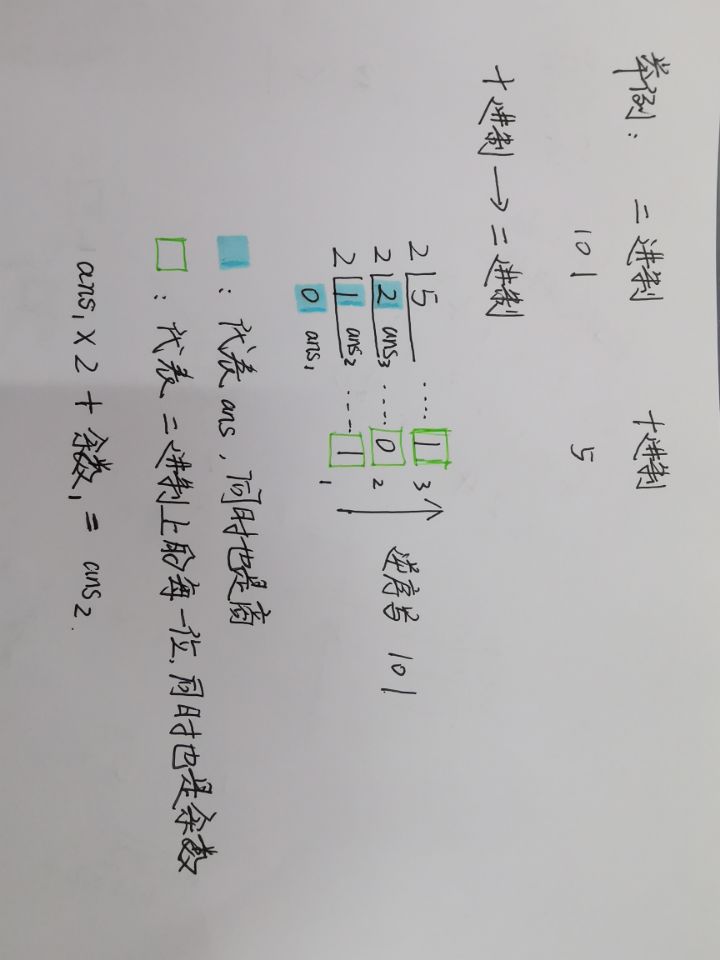 举例： 二进制 十进制
101 5
十进制 → 二进制
2 5 ····· 1 3
2 2 ans₃ ····· 0 2 逆序写 101
2 1 ans₂ ···· 1 1
0 ans₁
：代表ans，同时也是商
：代表二进制上的每一位，同时也是余数
ans₁ × 2 + 余数₁ = ans₂.